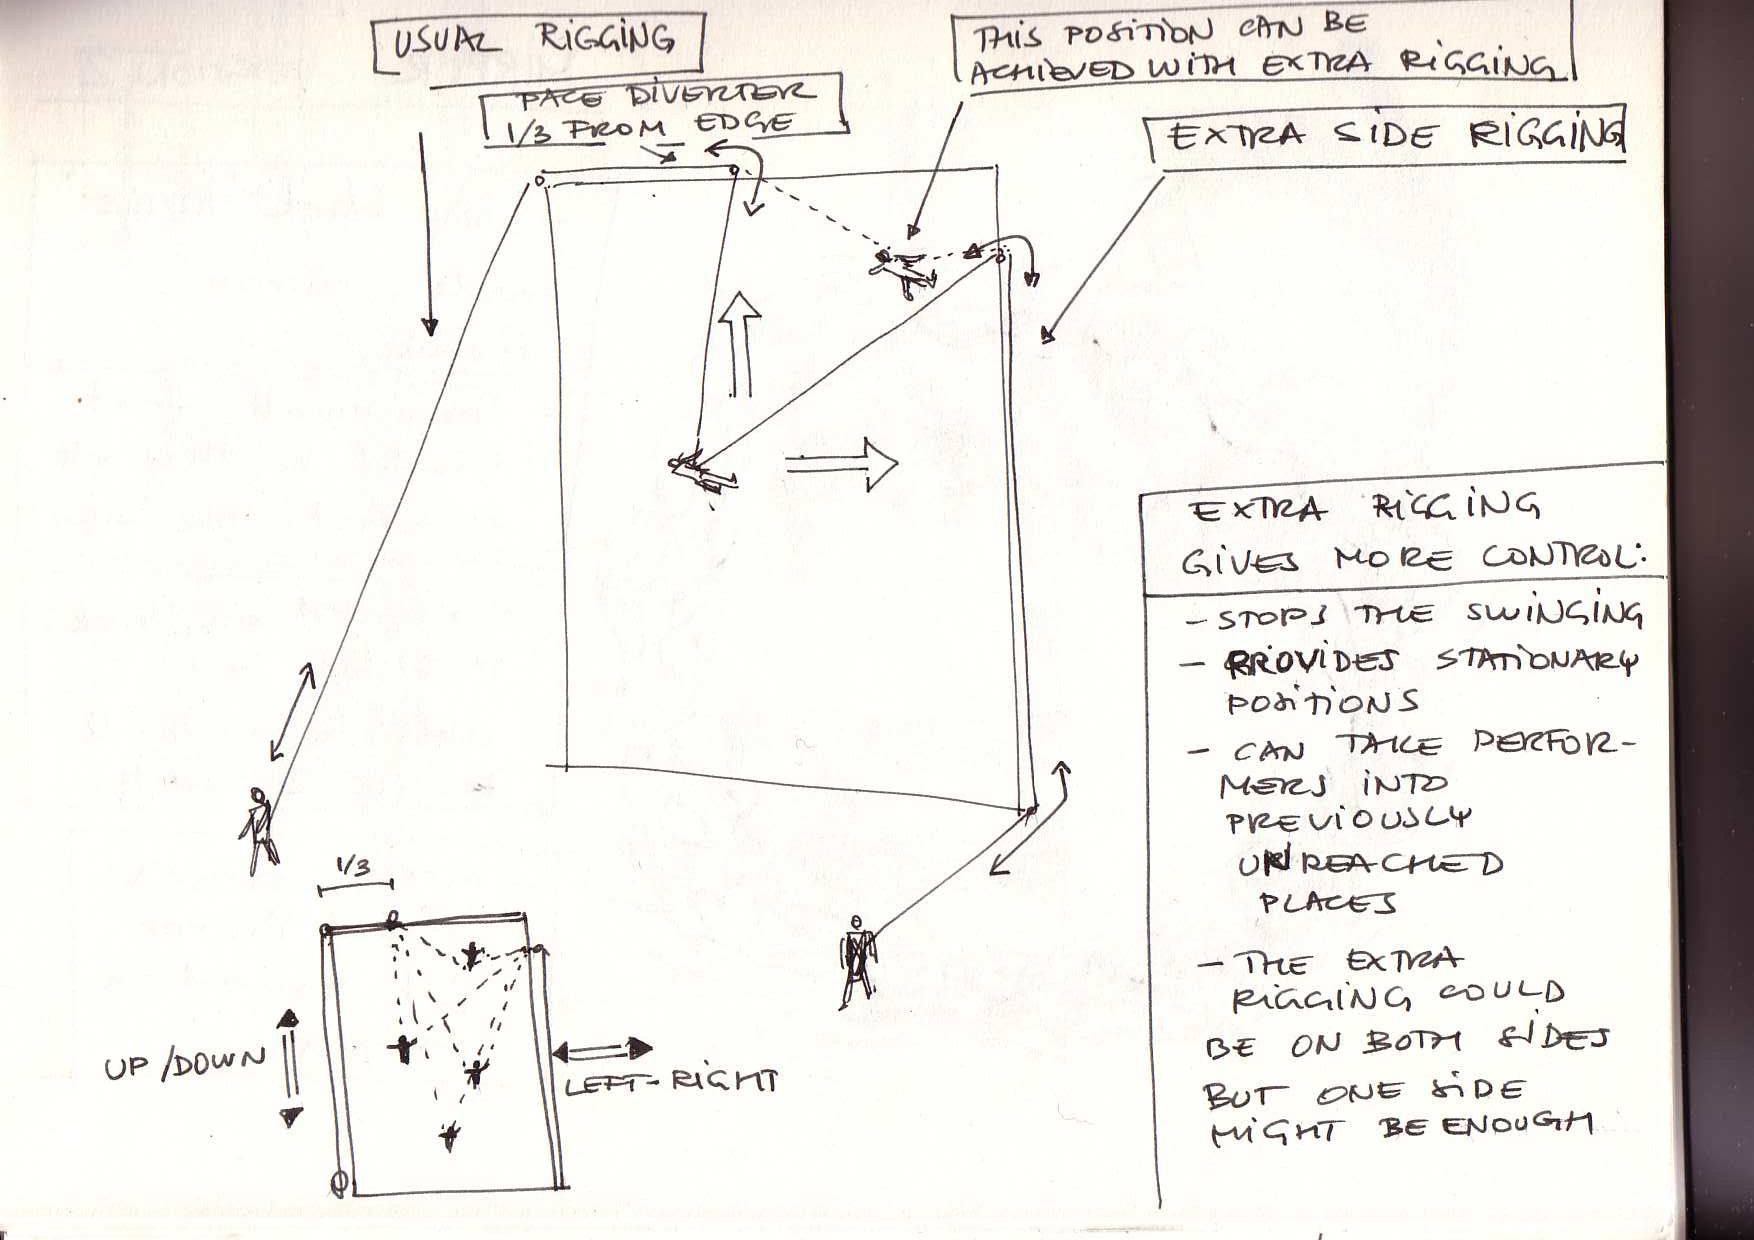 USUAL RIGGING
PACE DIVERTER
1/3 FROM EDGE
THIS POSITION CAN BE
ACHIEVED WITH EXTRA RIGGING
EXTRA SIDE RIGGING
EXTRA RIGGING
GIVES MORE CONTROL:
- STOPS THE SWINGING
- PROVIDES STATIONARY
POSITIONS
- CAN TAKE PERFOR-
MERS INTO
PREVIOUSLY
UNREACHED
PLACES
- THE EXTRA
RIGGING COULD
BE ON BOTH SIDES
BUT ONE SIDE
MIGHT BE ENOUGH
1/3
UP/DOWN
LEFT-RIGHT